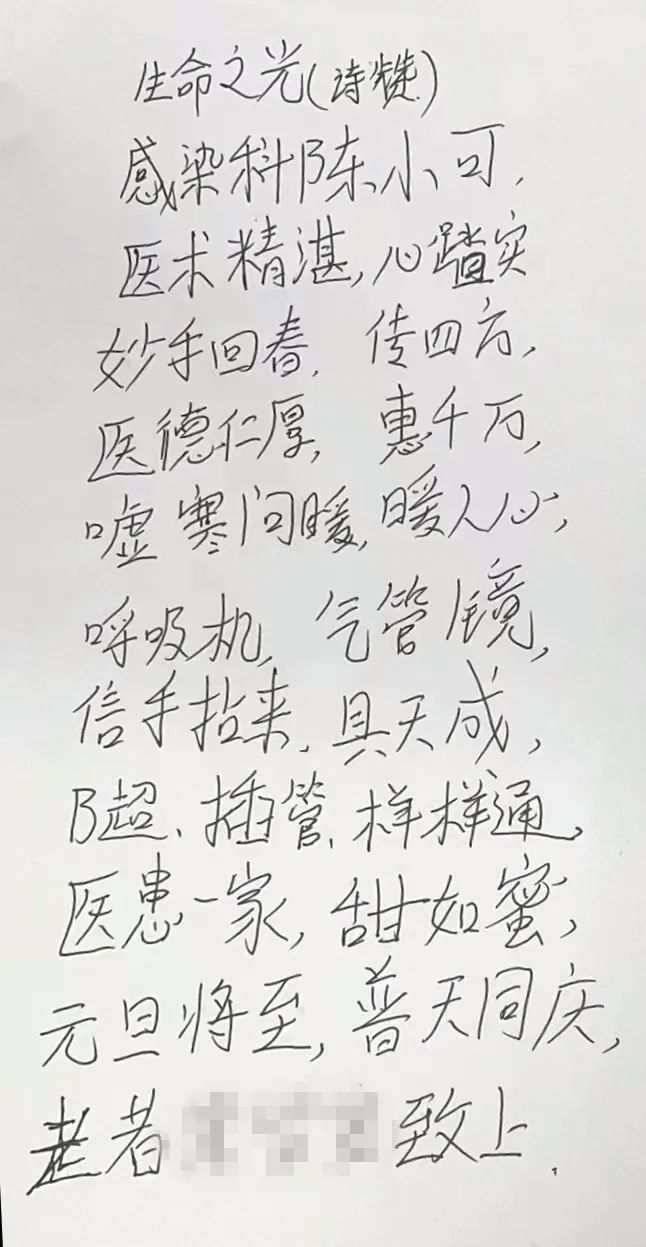 生命之光(诗赞)
感染科陈小可,
医术精湛,心踏实
妙手回春,传四方,
医德仁厚,惠千万,
嘘寒问暖,暖人心,
呼吸机,气管镜,
信手拈来,具天成,
B超、插管、样样通,
医患一家,甜如蜜,
元旦将至,普天同庆,
老者 致上.